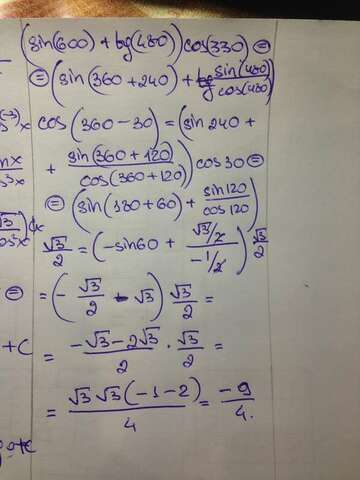 (sin(600) + tg(480)) cos(330) =
= (sin(360+240) + sin(480)/cos(480))
x cos(360-30) = (sin 240 +
+ sin(360+120)/cos(360+120)) cos 30 =
= (sin(180+60) + sin 120/cos 120)
√3/2 = (-sin60 + √3/2/-1/2) √3/2
= = (-√3/2 - √3) √3/2 =
+C = -√3-2√3/2 · √3/2 =
= √3 √3 (-1-2)/4 = -9/4.